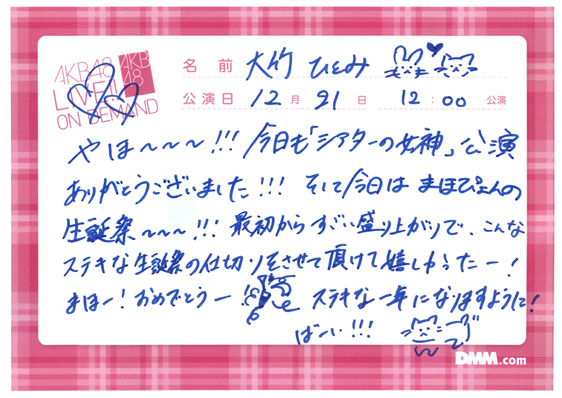 AKB48
LIVE!!
ON DEMAND
AKB
48
名前 大竹 ひとみ
公演日 12月21日 12:00 公演
やほ〜〜〜!!! 今日も「シアターの女神」公演
ありがとうございました!!! そして今日は まほぴょんの
生誕祭〜〜〜!!! 最初から すごい盛り上がりで、こんな
ステキな生誕祭の仕切りをさせて頂けて嬉しかったー!
まほー!おめでとうー!! ステキな一年になりますように!
ばーい!!!
DMM.com